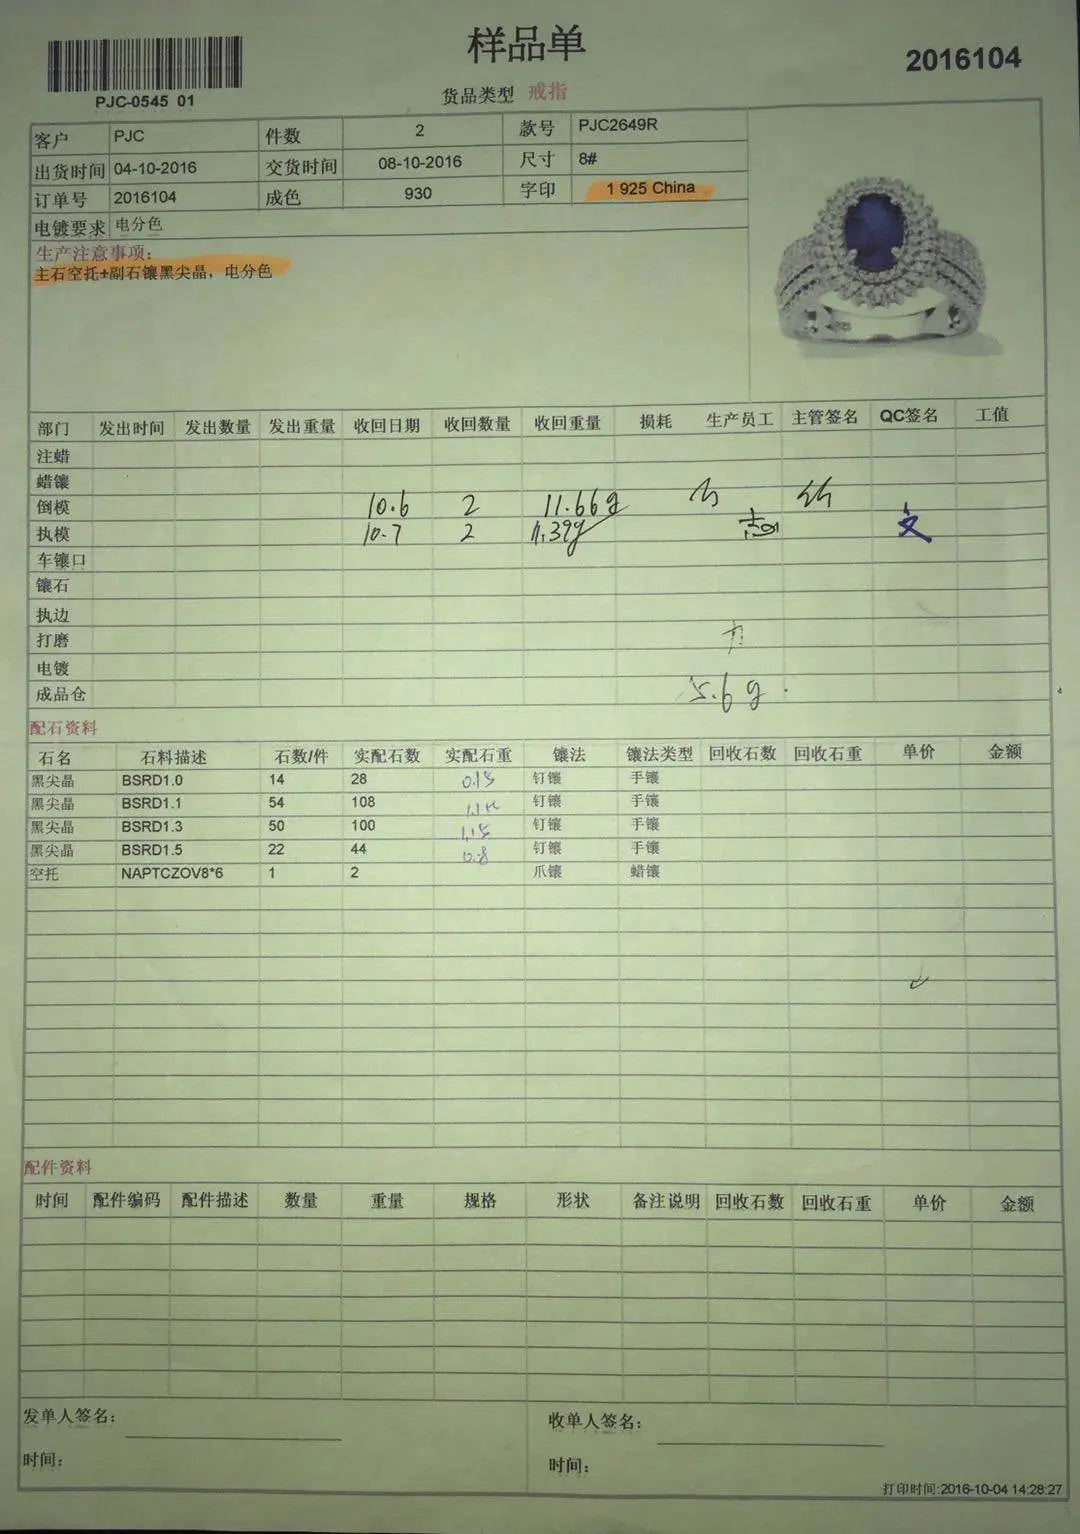 样品单
2016104
PJC-0545 01
货品类型 戒指
客户 PJC 件数 2 款号 PJC2649R
出货时间 04-10-2016 交货时间 08-10-2016 尺寸 8#
订单号 2016104 成色 930 字印 1 925 China
电镀要求 电分色
生产注意事项:
主石空托+副石镶黑尖晶，电分色
部门 发出时间 发出数量 发出重量 收回日期 收回数量 收回重量 损耗 生产员工 主管签名 QC签名 工值
注蜡
蜡镶
倒模 10.6 2 11.66g
执模 10.7 2 11.39g 文
车镶口
镶石
执边
打磨
电镀
成品仓 5.6g
配石资料
石名 石料描述 石数/件 实配石数 实配石重 镶法 镶法类型 回收石数 回收石重 单价 金额
黑尖晶 BSRD1.0 14 28 0.15 钉镶 手镶
黑尖晶 BSRD1.1 54 108 钉镶 手镶
黑尖晶 BSRD1.3 50 100 1.15 钉镶 手镶
黑尖晶 BSRD1.5 22 44 0.8 钉镶 手镶
空托 NAPTCZOV8*6 1 2 爪镶 蜡镶
配件资料
时间 配件编码 配件描述 数量 重量 规格 形状 备注说明 回收石数 回收石重 单价 金额
发单人签名:
收单人签名:
时间:
时间:
打印时间:2016-10-04 14:28:27